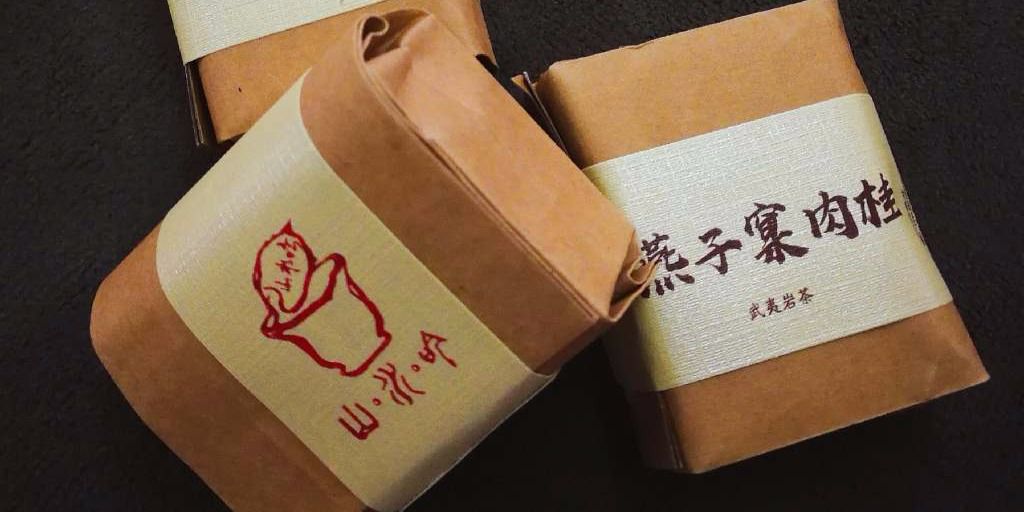 山水吟
山·水·吟
燕子窠肉桂
武夷岩茶